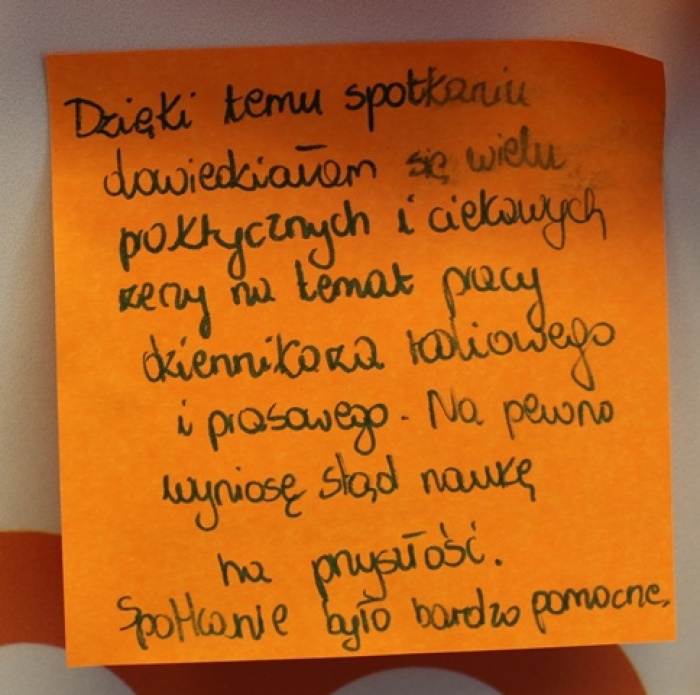 Dzięki temu spotkaniu
dowiedziałam się wielu
praktycznych i ciekawych
rzeczy na temat pracy
dziennikarza radiowego
i prasowego. Na pewno
wyniosę stąd naukę
na przyszłość.
Spotkanie było bardzo pomocne.